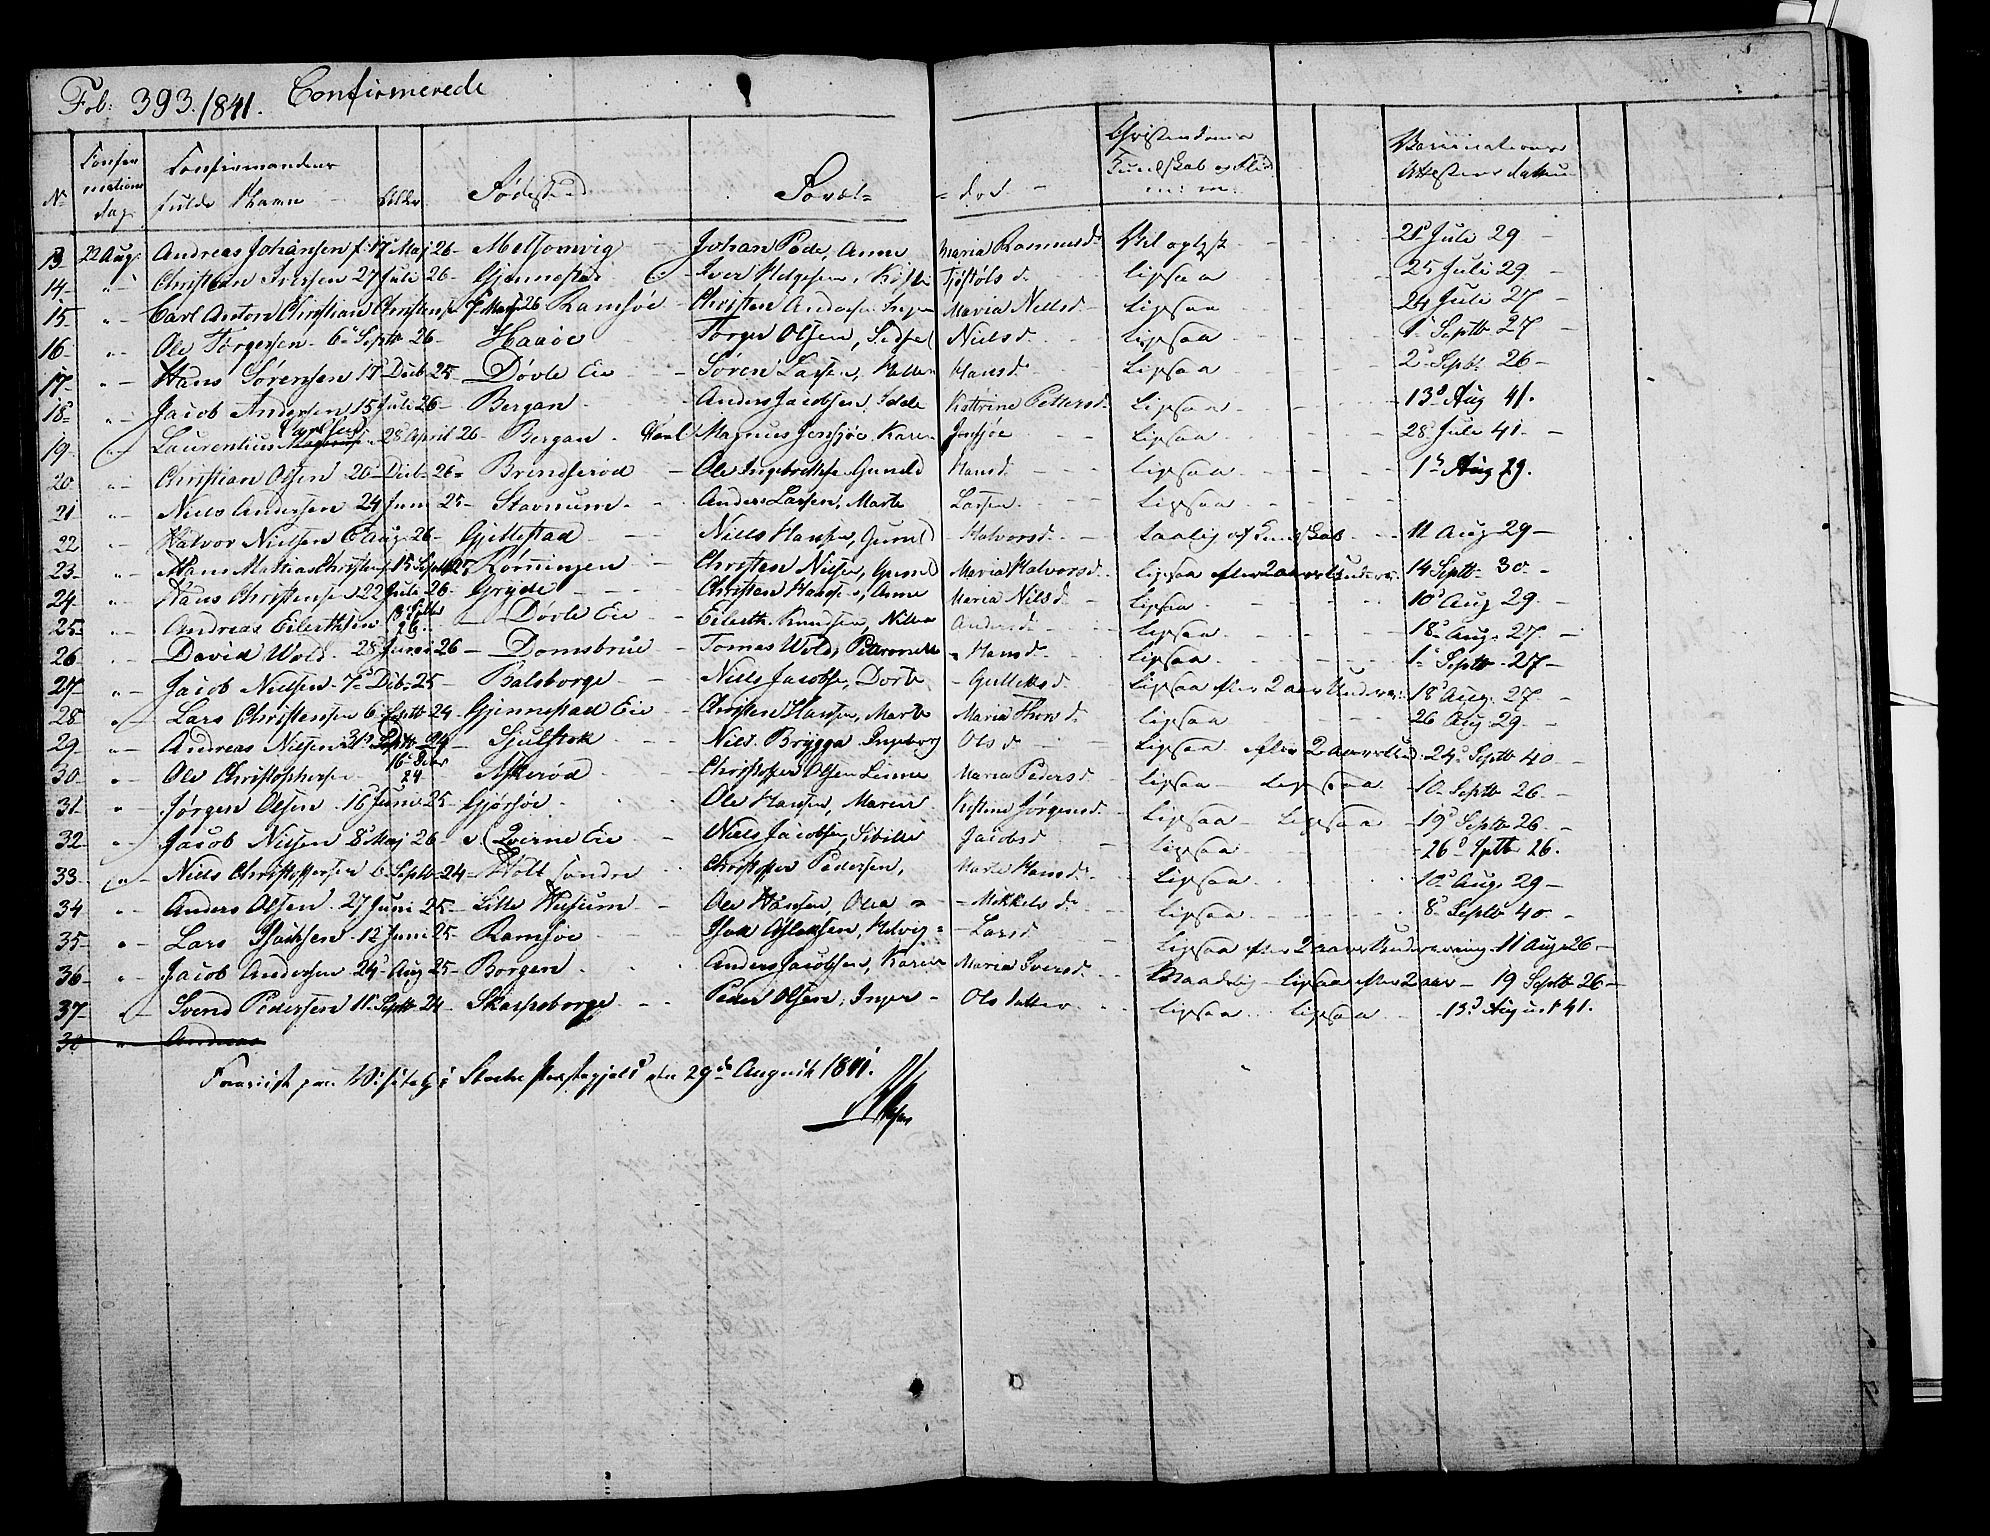 Fol: 393./1841. Confirmerede
No Confirmations Dag. Confirmandens fulde Navn Alder Fødested Foræl= =dre Christendoms Kundskab og Flid m: m: Vaccinations Attestens datum
13- 22 Aug. Andreas Johansen f. 17 Maj 26- Melsomvig Johan Peder, Anne Maria Rasmusd. Vel oplyst 21 Juli 29
14- " Christian Iversen 27 Juli 26- Gjennestad Iver Helgesen, Tjøstøls d. ligesaa 25 Juli 29.
15- " Carl Anton Christian Christensen Maj 26 Ramsøe Christen Maria Nielsd. ligesaa 24 Juli 27
16- " Ole Jørgensen 6 Septb 26- Haaøe Jørgen Olsen, Sidsel Nielsd. ligesaa 1 Septb 27
17- " Hans Sørensen 17 Decb 25- Døvle Eie Søren Larsen, Hansd. ligesaa 2 Septb: 26-
18- " Jacob Andersen 15 Juli 26- Bergan Anders Jacobsen, Kattrine Pettersd. ligesaa 13 Aug 41.
19- " Laurentius 28 April 26- Bergan Magnus Jensøe, Karen Jensøe ligesaa 28 Juli 41-
20- " Christian Olsen 20 Decb 26- Brendserød Ole Ingebretsen Gunild Hansd. ligesaa 1 Aug 29.
21- " Niels Andersen 24 Juni 25- Stavnum Anders Larsen, Marte Larsen ligesaa
22 " Halvor Nielsen 6 Aug 26- Gjettestad Niels Hansen, Gunild Halvorsd. taalig af Kundskab 11 Aug 29-
23- " Hans Mathias Christensen 15 Septb 25 Rønningen Christen Nielsen, Gunild Maria Halvorsd. ligesaa efter 2 aars Underv. 14 Septb 30-
24- " Hans Christensen 22 Juli 26- Gryde Christen Hansen, Anne Maria Nilsd ligesaa 10 Aug 29-
25- " Andreas Eilertsen 26 Døvle Eie Eilert Knudsen, Andersd ligesaa 18 Aug. 27-
26- " David Wold 28 Juni 26- Domsbrue Tomas Wold, Petternelle Hansd. ligesaa 1 Septb 27-
27 " Jacob Nielsen 7 Decb 25- Balsborge Niels Jacobsen, Dorte Gulleksd. ligesaa efter 2 aars Underv. 18 Aug. 27-
28- " Lars Christensen 6 Septb 24- Gjennestad Eie Christen Hansen, Marte Maria Thorsd. ligesaa 26 Aug. 29-
29- " Andreas Nielsen Septb 24- Sjulstok Niels Brygga Ingeborg Olsd ligesaa efter 2 aars 24 Septb 40-
30- " Ole Christophersen 16 24 Askerød Christopher Olsen Maria Pedersd. ligesaa ligesaa 10 Septb 26-
31- " Jørgen Olsen 16 Juni 25- Gjørsøe Ole Hansen, Maren Kirstine Jørgensd. ligesaa ligesaa 19 Septb 26-
32- " Jacob Nielsen 8 Maj 26 Qverne Eie Niels Jacobsen, Sibille Jacobsd ligesaa 26 Sptb 26.
33- " Niels Christoffersen 6 Septb 24- Holt Søndre Christoffer Pedersen, Marte Hansd. ligesaa 10 Aug. 29-
34 " Anders Olsen 27 Juni 25- Lille Husum Ole Hansen Olea Mikkels d. ligesaa 8 Septb 40-
35- " Lars Isachsen 12 Juni 25- Ramsøe Isak Aslaksen, Helvig Larsd ligesaa efter 2 aars Underviisning 11 Aug 26-
36- " Jacob Andersen 24 Aug 25- Borgen Anders Jacobsen, Karen Maria Iversd. Maadelig ligesaa efter 2 aar 19 Septb 26-
37- " Svend Pedersen 11 Septb 24- Skarpsborge Peder Olsen, Inger Olsdatter ligesaa ligesaa 13 August 41.
38 " Andreas
Foreviist paa Visitats i Stokke Præstegjeld den 29de August 1841.